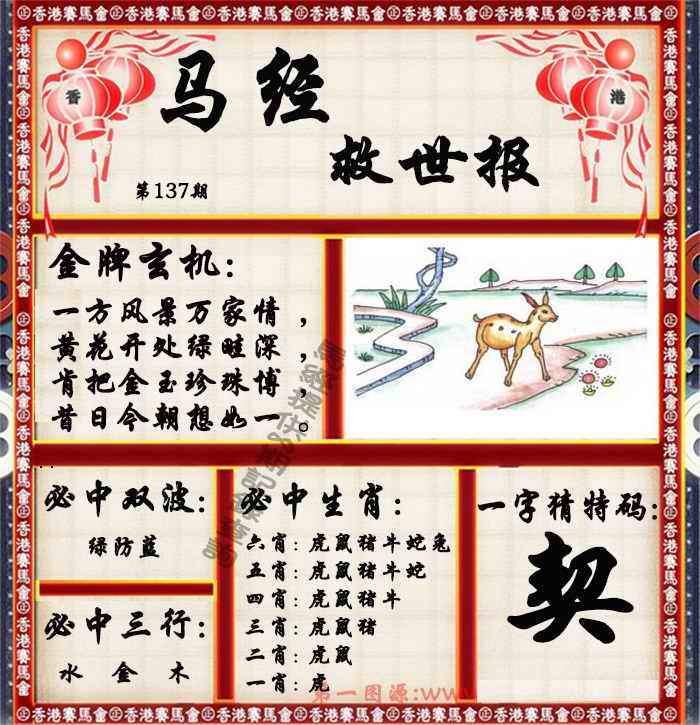 香港賽馬會
香 港
马经
救世报
第137期
金牌玄机:
一方风景万家情，
黄花开处绿畦深，
肯把金玉珍珠博，
昔日今朝想如一。
必中双波:
绿防蓝
必中三行:
水 金 木
必中生肖:
六肖:虎鼠猪牛蛇兔
五肖:虎鼠猪牛蛇
四肖:虎鼠猪牛
三肖:虎鼠猪
二肖:虎鼠
一肖:虎
一字猜特码:
契
第一图源:www